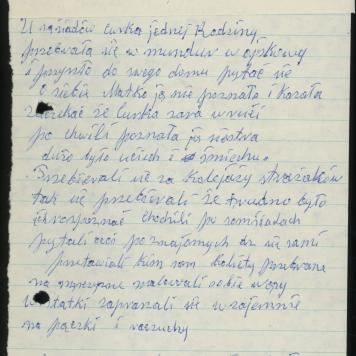 U sąsiadów curka jednej Rodziny
przebrała się w mundur wojskowy
i przyszło do swego domu pytać się
o siebie Matka ją nie poznała i kazała
zaczekać że Curka zara wruci
po chwili poznała ją siostra
dużo było uciech i śmiechu
Przebierali się za kolejazy strażaków
tak się przebierali że trudno było
ich rozpoznać chodzili po sąmsiadach
pytali coś poznajomych
kim som kobiety przebrane
na menszczyzne malowali sobie wąsy
w ostatki zapraszali się w zajemnie
na pączki i racuchy